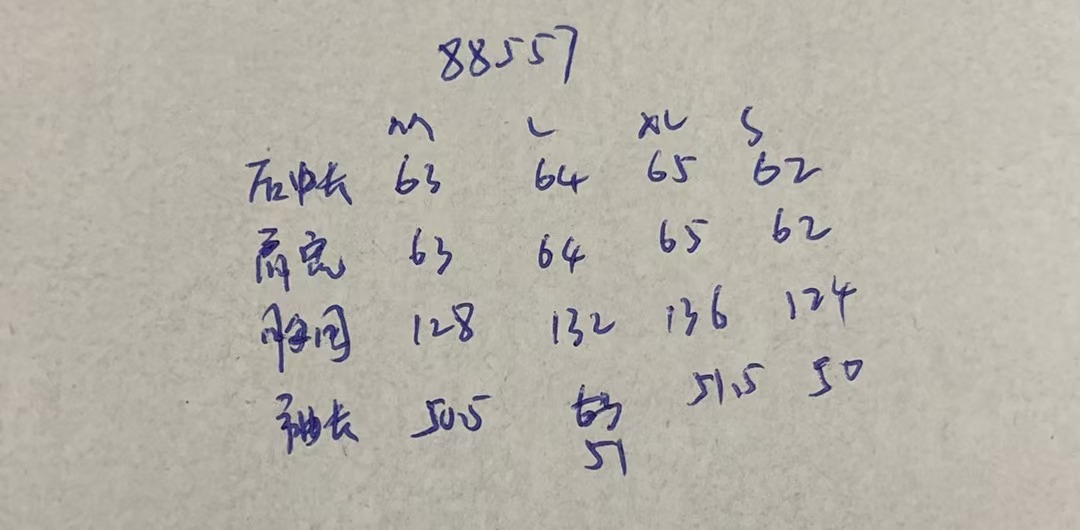 88557
M L XL S
后中长 63 64 65 62
肩宽 63 64 65 62
胸围 128 132 136 124
袖长 50.5 51.5 50
51